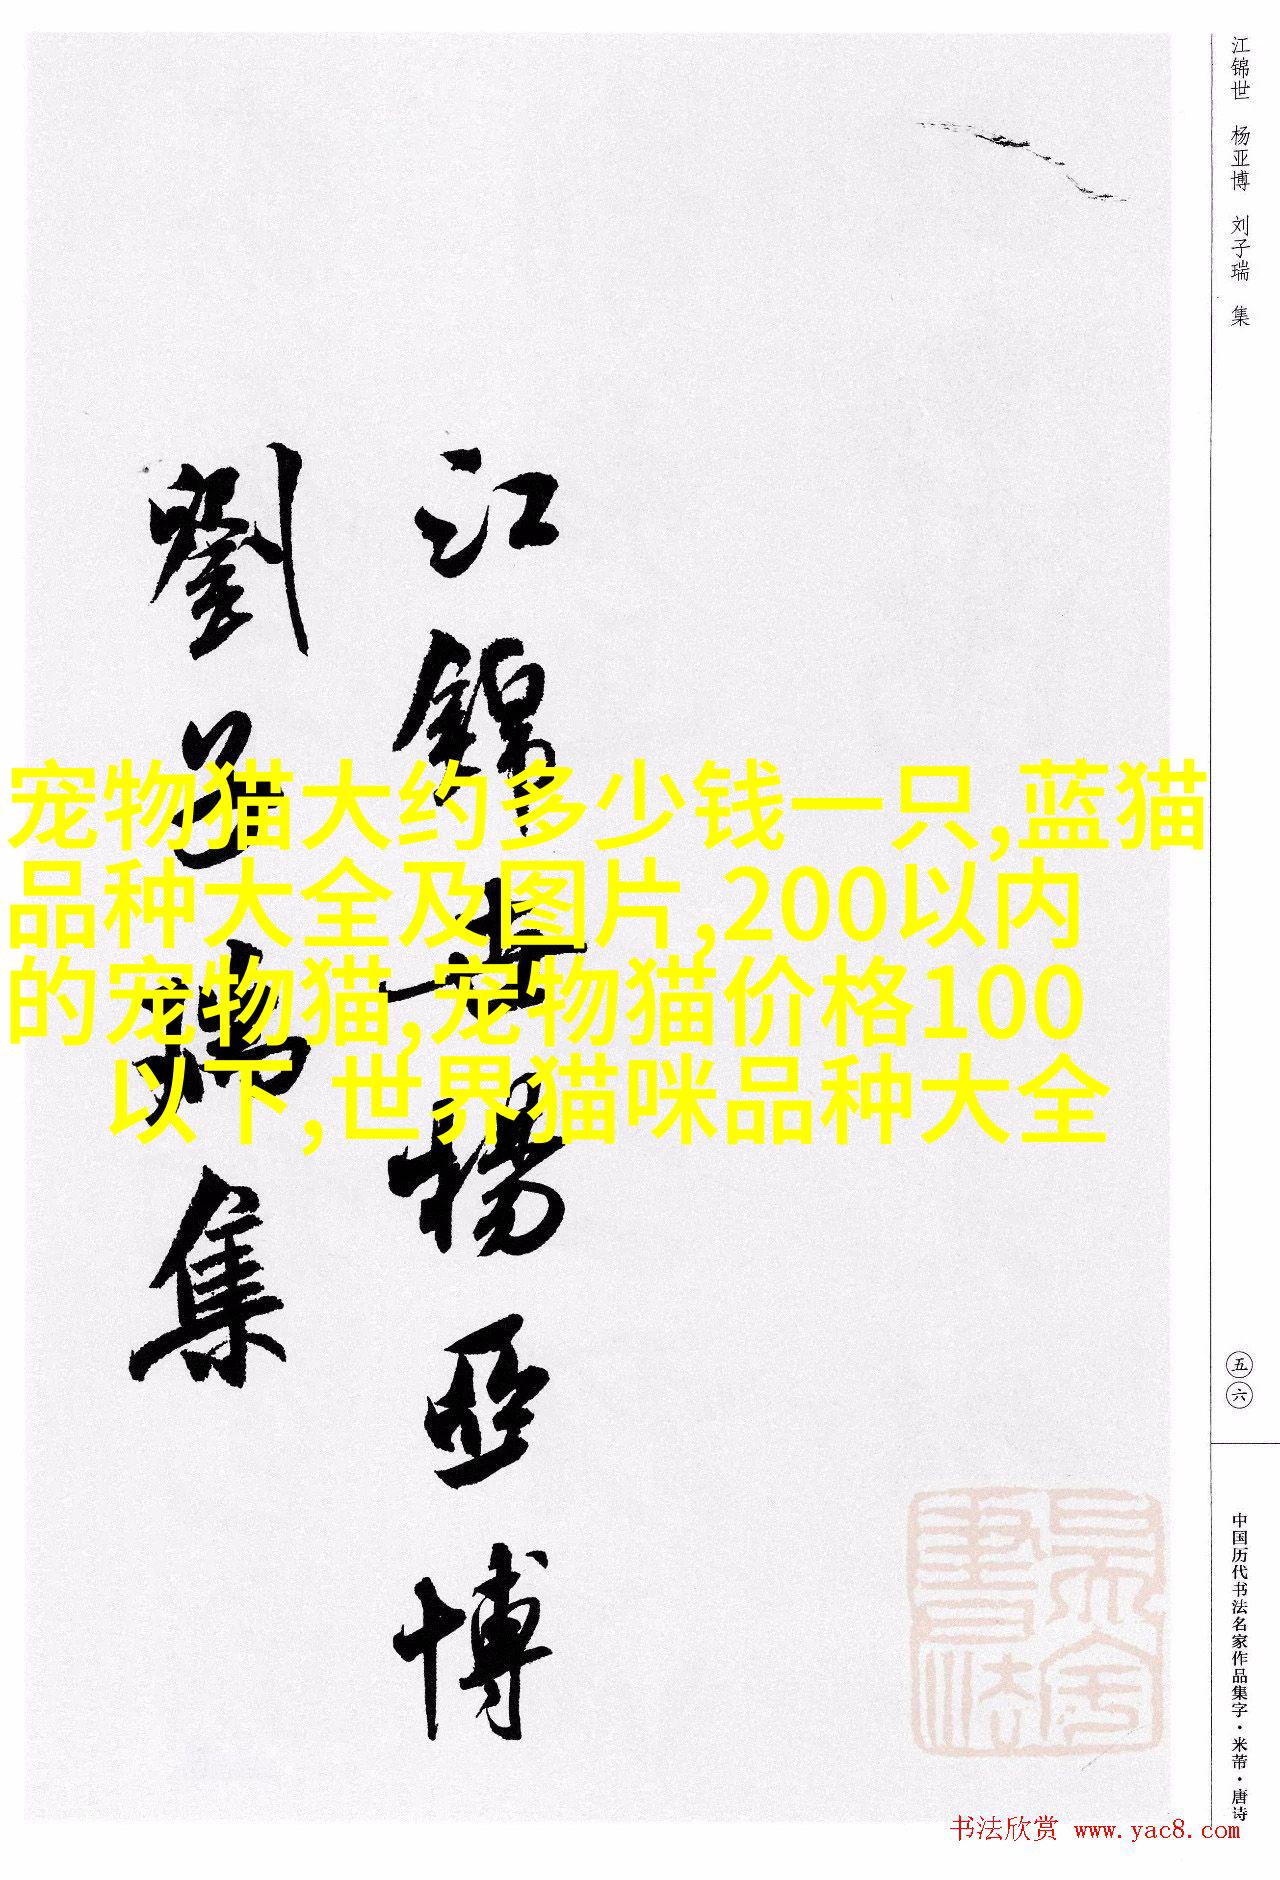 江锦世 杨亚博 刘子瑞 集
江錦世楊亞博
劉子瑞集
宠物猫大约多少钱一只,蓝猫
品种大全及图片,200以内
的宠物猫,宠物猫价格100
以下,世界猫咪品种大全
五六
中国历代书法名家作品集字·米芾·唐诗
书法欣赏 www.yac8.com